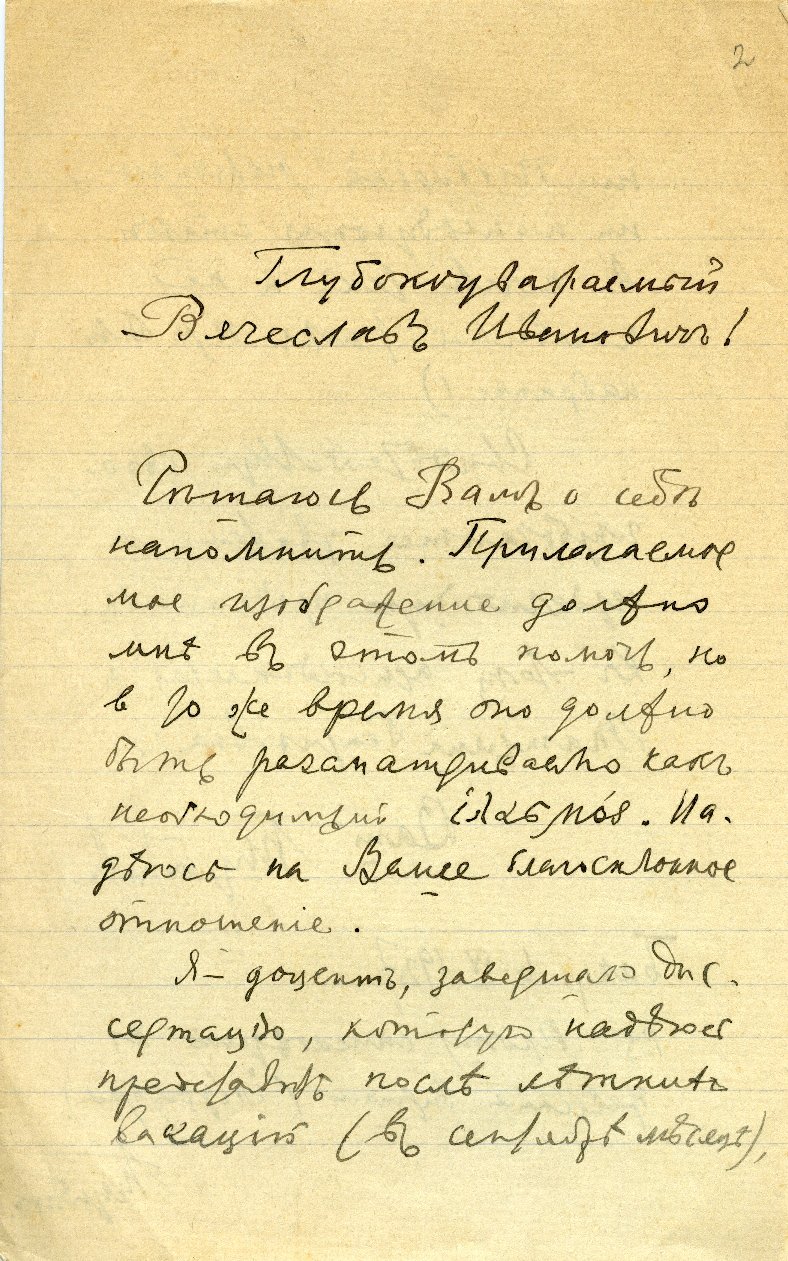 2
Глубокоуважаемый
Вячеславъ Ивановичъ!
Рѣшаюсь Вамъ о себѣ
напомнить. Прилагаемое
мое изображение должно
мнѣ въ этомъ помочь, но
в то же время оно должно
быть разсматриваемо какъ
необходимый ἱλασμός. На-
дѣюсь на Ваше благосклонное
отношенiе.
Я – доцентъ, завершаю дис-
сертацiю, которую надѣюсь
представить послѣ лѣтнихъ
вакацiй (въ сентябрѣ мѣсяцѣ),